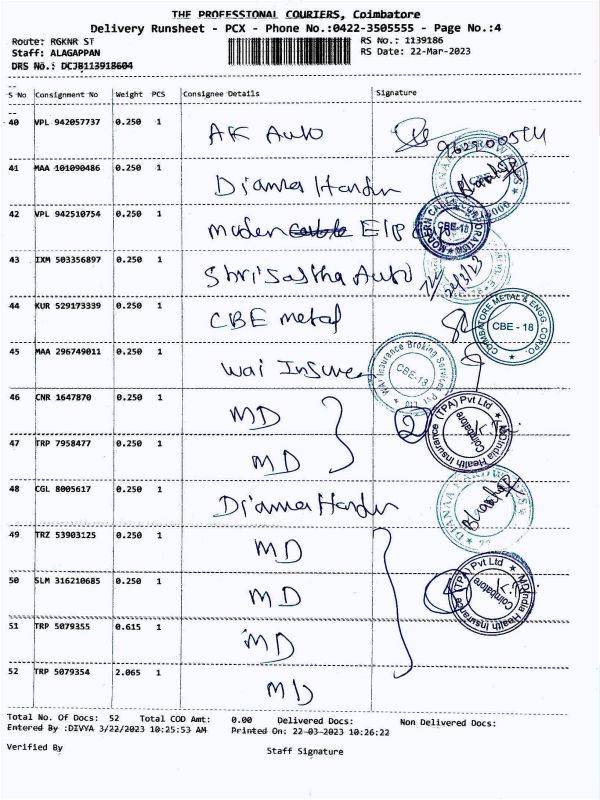 THE PROFESSIONAL COURIERS, Coimbatore
Delivery Runsheet - PCX - Phone No.:0422-3505555 - Page No.:4
Route: RGKNR ST
RS No.: 1139186
Staff: ALAGAPPAN
RS Date: 22-Mar-2023
DRS No.: DCJB113918604
S No Consignment No Weight PCS Consignee Details Signature
40 VPL 942057737 0.250 1 AK Auto
41 MAA 101090486 0.250 1
42 VPL 942510754 0.250 1
43 IXM 503356897 0.250 1 Auto
44 KUR 529173339 0.250 1 CBE metal
COIMBATORE METAL & ENGG. CORPO.
CBE - 18
45 MAA 296749011 0.250 1 Wai
WAI Insurance Broking Services Pvt
CBE-18
46 CNR 1647870 0.250 1 MD
2
MDIndia Health Insurance (TPA) Pvt Ltd
Coimbatore
47 TRP 7958477 0.250 1 MD
48 CGL 8005617 0.250 1
49 TRZ 53903125 0.250 1 MD
50 SLM 316210685 0.250 1 MD
MDIndia Health Insurance (TPA) Pvt Ltd
Coimbatore
51 TRP 5079355 0.615 1 MD
52 TRP 5079354 2.065 1 MD
Total No. Of Docs: 52 Total COD Amt: 0.00 Delivered Docs: Non Delivered Docs:
Entered By :DIVYA 3/22/2023 10:25:53 AM Printed On: 22-03-2023 10:26:22
Verified By
Staff Signature